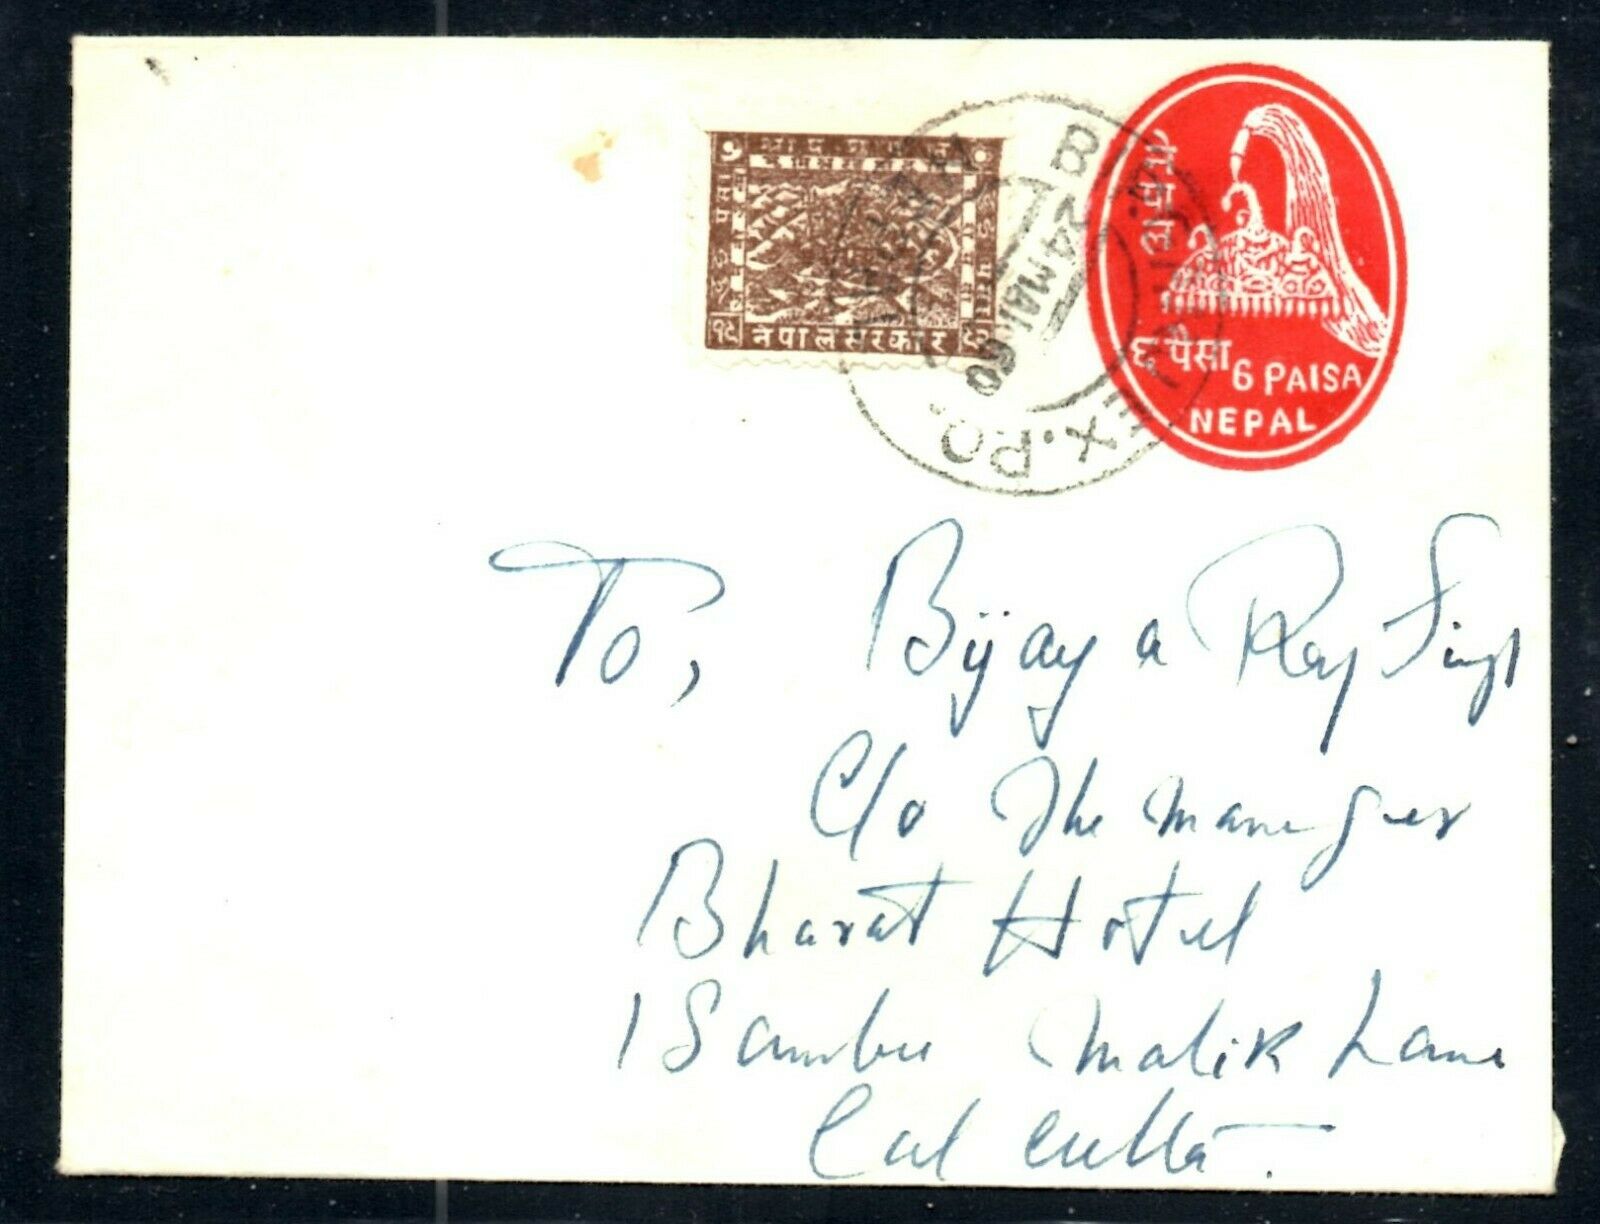 नेपाल सरकार
24 MAR 60
EX. P.O.
छ पैसा 6 PAISA
NEPAL
To, Bijaya Raj Singh
C/o The Manager
Bharat Hotel
1 Sambu Malik Lane
Calcutta.